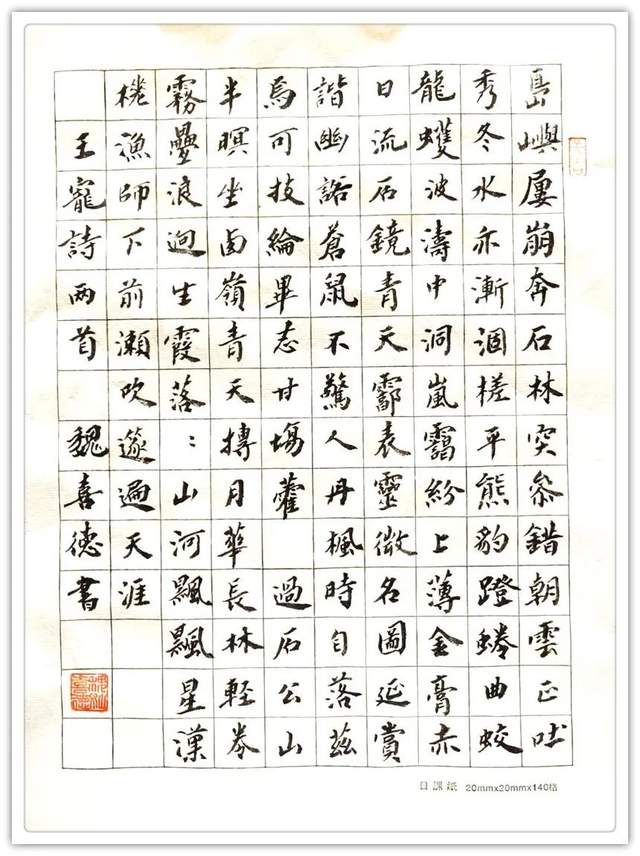 島嶼屢崩奔石林突參錯朝雲正吐
秀冬水亦漸涸槎平熊豹蹬蜷曲蛟
龍蠖波濤中洞嵐靄紛上薄金膏赤
日流石鏡青天霩表靈微名圖延賞
諧幽詣蒼鼠不驚人丹楓時自落茲
焉可投綸畢志甘場藿 過石公山
半暝坐卤嶺青天摶月華長林輕卷
霧疊浪迥生霞落：山河飄飄星漢
槎漁師下前瀨吹篴遍天涯
王寵詩两首 魏喜德書
日課紙 20mmx20mmx140格